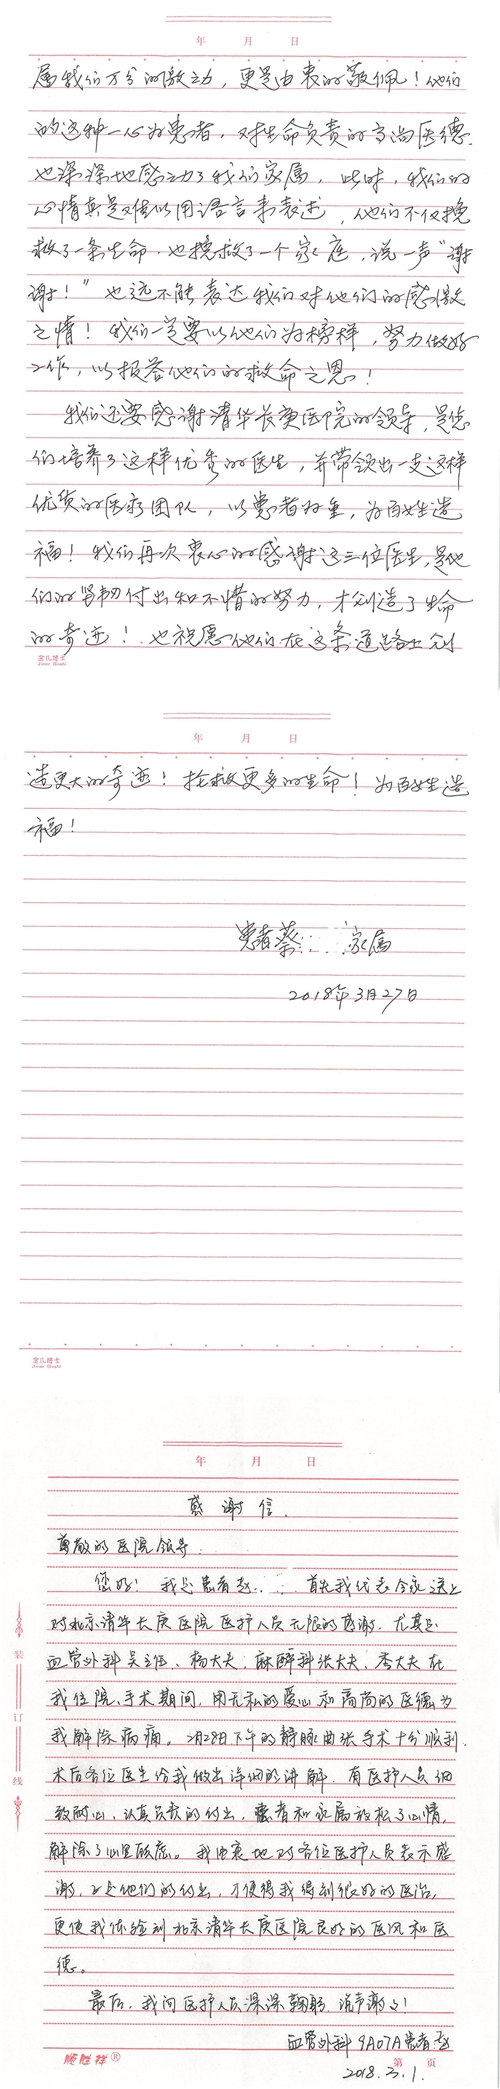 年 月 日
属我们万分的激动，更是由衷的敬佩！他们
的这种一心为患者，对生命负责的高尚医德，
也深深地感动了我们家属，此时，我们的
心情真是难以用语言来表述，他们不仅挽
救了一条生命，也挽救了一个家庭，说一声“谢
谢！”也远不能表达我们对他们的感激
之情！我们一定要以他们为榜样，努力做好
工作，以报答他们的救命之恩！
我们还要感谢清华长庚医院的领导，是您
们培养了这样优秀的医生，并带领出一支这样
优质的医疗团队，以患者为重，为百姓造
福！我们再次衷心的感谢这三位医生，是他
们的努力付出和不惜的努力，才创造了生命
的奇迹！也祝愿他们在这条道路上创
年 月 日
造更大的奇迹！抢救更多的生命！为百姓造
福！
患者蔡 家属
2018年3月27日
年 月 日
感谢信
尊敬的医院领导
您好！我是患者赵 首先我代表全家送上
对北京清华长庚医院医护人员无限的感谢，尤其是
血管外科吴主任、杨大夫，麻醉科张大夫、李大夫在
我住院、手术期间，用无私的爱心和高尚的医德为
我解除病痛。2月28日下午的静脉曲张手术十分顺利，
术后各位医生给我做出详细的讲解，有医护人员细
致耐心，认真负责的付出，患者和家属放松了心情，
解除了心里顾虑。我由衷地对各位医护人员表示感
谢，正是他们的付出，才使得我得到很好的医治，
更使我体验到北京清华长庚医院良好的医风和医
德。
最后，我向医护人员深深鞠躬，说声谢谢！
血管外科 9A07A患者：赵
2018.3.1.
顺胜祥® 第 页
装
订
线